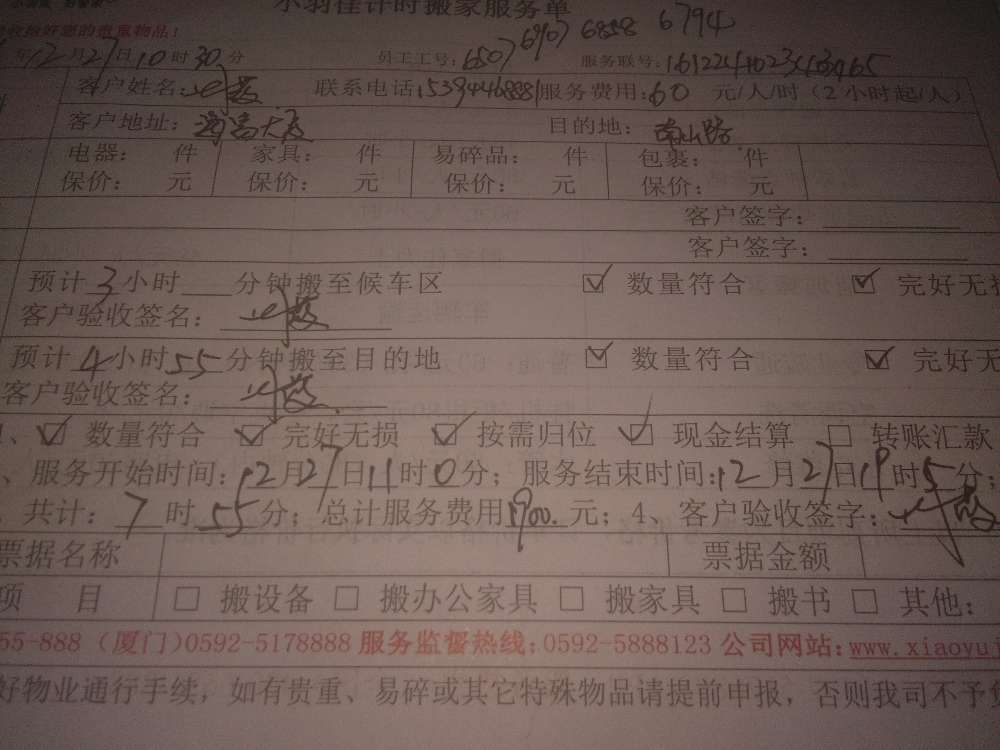 小羽佳计时搬家服务单
收拾好您的贵重物品！
年12月27日10时30分 员工工号：6507 6907 6858 6794 服务联号：
客户姓名： 联系电话 服务费用：60 元/人/时（2小时起/人）
客户地址： 大厦 目的地：南山路
电器： 件 家具： 件 易碎品： 件 包裹： 件
保价： 元 保价： 元 保价： 元 保价： 元
客户签字：
客户签字：
预计3小时 分钟搬至候车区 ☑ 数量符合 ☑ 完好无损
客户验收签名：
预计4小时55分钟搬至目的地 ☑ 数量符合 ☑ 完好无
客户验收签名：
、☑ 数量符合 ☑ 完好无损 ☑ 按需归位 ☑ 现金结算 □ 转账汇款
、服务开始时间：12月27日11时0分；服务结束时间：12月27日19时5分；
共计：7时55分；总计服务费用1900.元；4、客户验收签字：
票据名称 票据金额
项 目 □ 搬设备 □ 搬办公家具 □ 搬家具 □ 搬书 □ 其他：
55-888 (厦门)0592-5178888 服务监督热线：0592-5888123 公司网站：www.xiaoyu
好物业通行手续，如有贵重、易碎或其它特殊物品请提前申报，否则我司不予